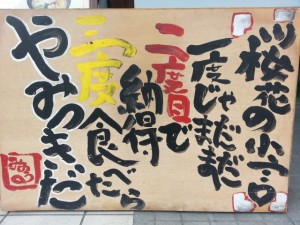 桜花の小言
一度じゃまだまだ
二度目で
納得
三度食べたら
やみつきだ